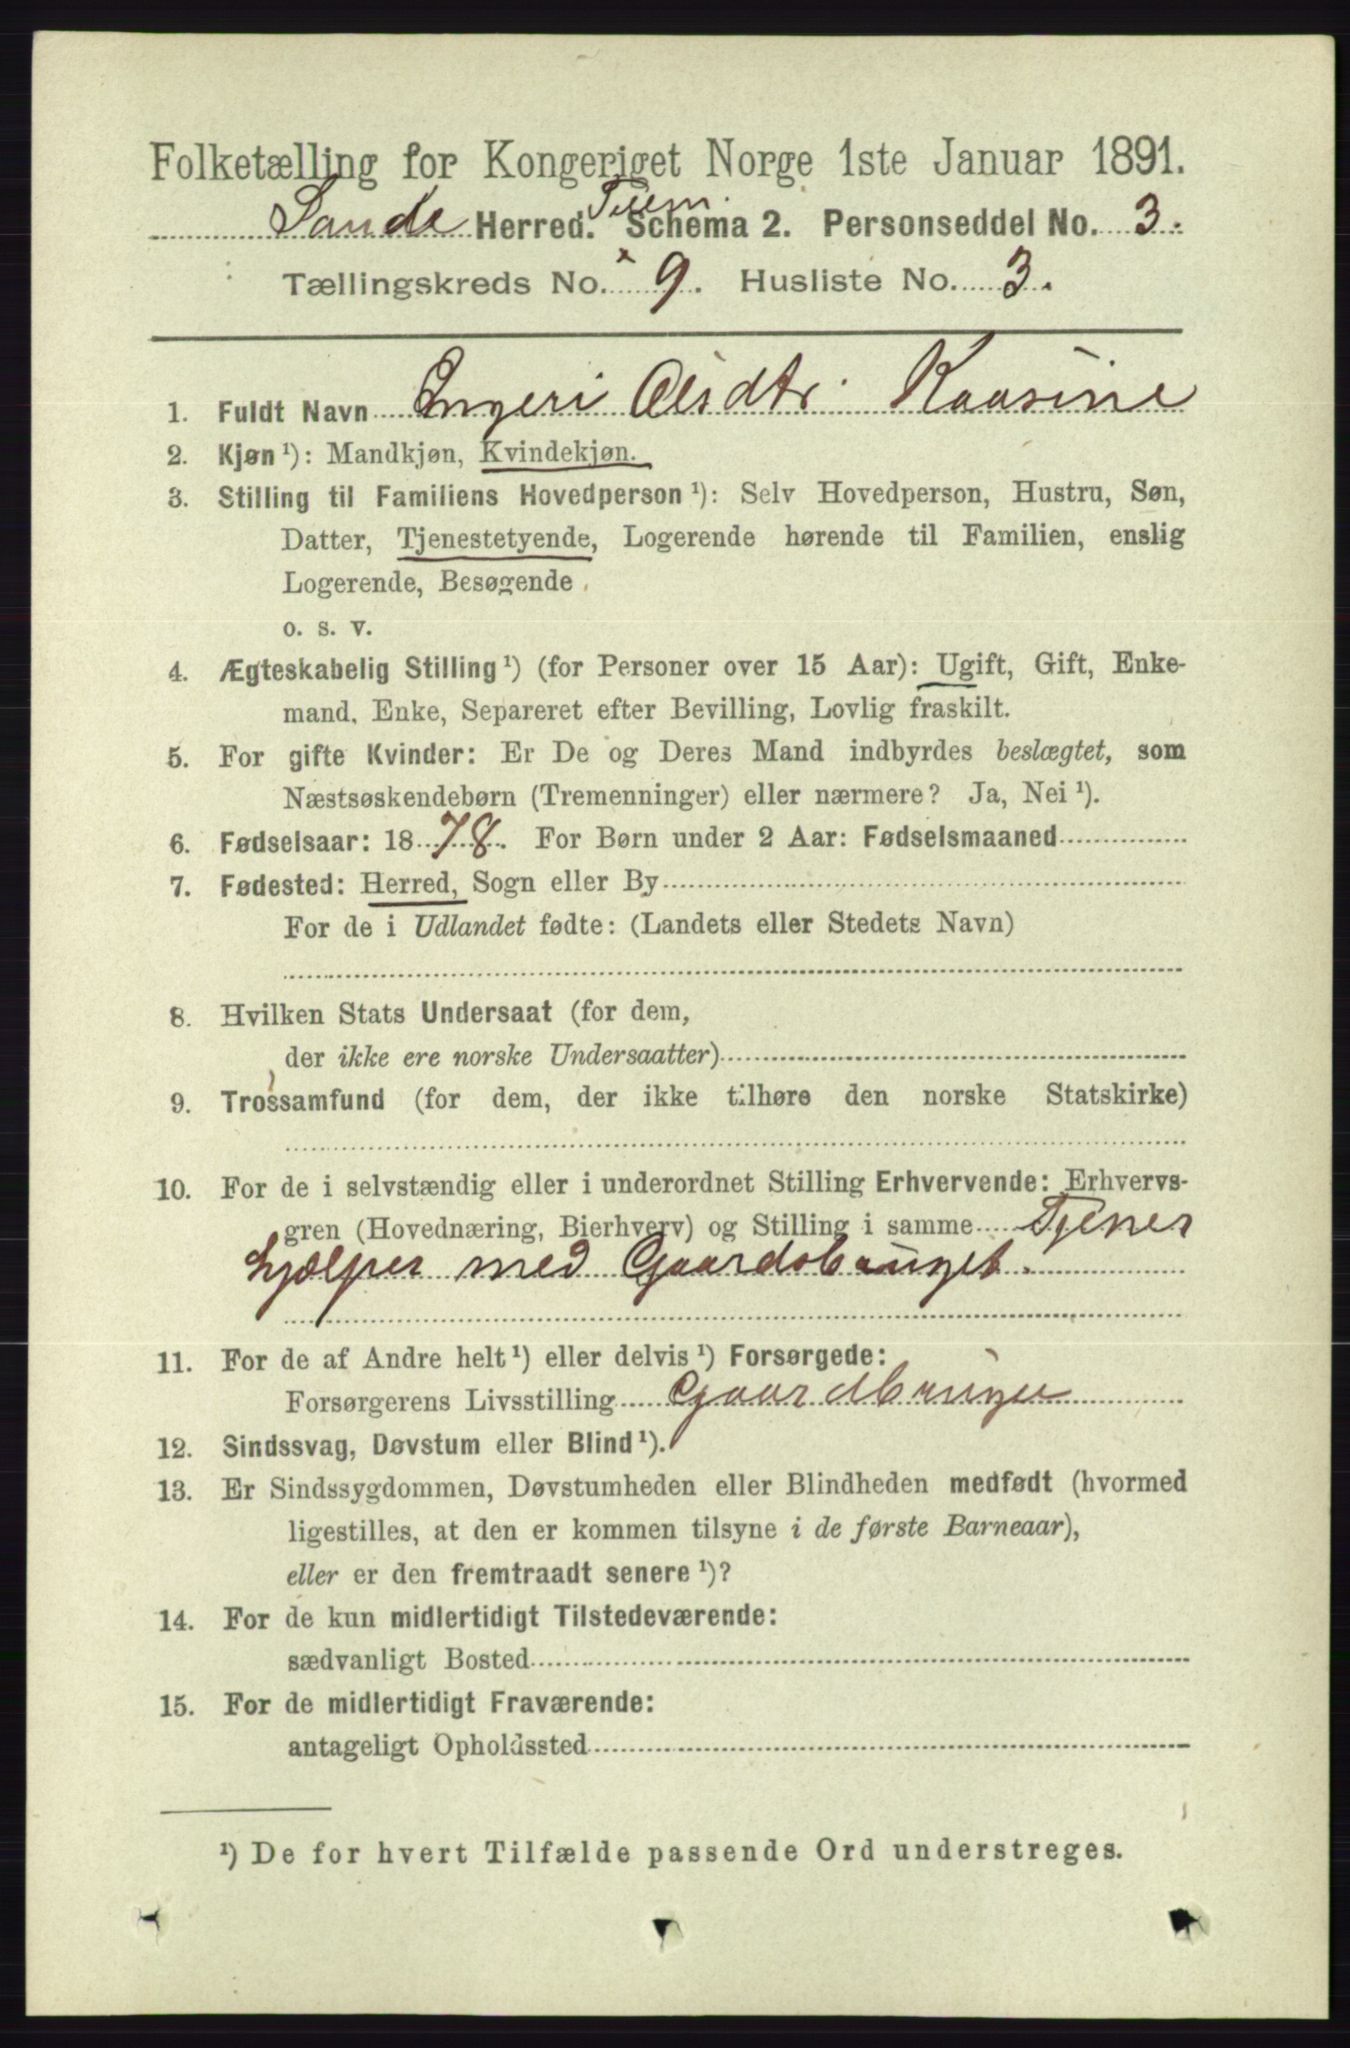 Folketælling for Kongeriget Norge 1ste Januar 1891.
Sande Herred. Schema 2. Personseddel No. 3.
Tællingskreds No. 9. Husliste No. 3.
1. Fuldt Navn Ingeri Olsdtr. Kaasine
2. Kjøn ¹): Mandkjøn, Kvindekjøn.
3. Stilling til Familiens Hovedperson ¹): Selv Hovedperson, Hustru, Søn,
Datter, Tjenestetyende, Logerende hørende til Familien, enslig
Logerende, Besøgende
o. s. v.
4. Ægteskabelig Stilling ¹) (for Personer over 15 Aar): Ugift, Gift, Enke-
mand, Enke, Separeret efter Bevilling, Lovlig fraskilt.
5. For gifte Kvinder: Er De og Deres Mand indbyrdes beslægtet, som
Næstsøskendebørn (Tremenninger) eller nærmere? Ja, Nei ¹).
6. Fødselsaar: 1878. For Børn under 2 Aar: Fødselsmaaned
7. Fødested: Herred, Sogn eller By
For de i Udlandet fødte: (Landets eller Stedets Navn)
8. Hvilken Stats Undersaat (for dem,
der ikke ere norske Undersaatter)
9. Trossamfund (for dem, der ikke tilhøre den norske Statskirke)
10. For de i selvstændig eller i underordnet Stilling Erhvervende: Erhvervs-
gren (Hovednæring, Bierhverv) og Stilling i samme Tjener
hjælper med Gaardsbruget.
11. For de af Andre helt ¹) eller delvis ¹) Forsørgede:
Forsørgerens Livsstilling Gaardbruger
12. Sindssvag, Døvstum eller Blind ¹).
13. Er Sindssygdommen, Døvstumheden eller Blindheden medfødt (hvormed
ligestilles, at den er kommen tilsyne i de første Barneaar),
eller er den fremtraadt senere ¹)?
14. For de kun midlertidigt Tilstedeværende:
sædvanligt Bosted
15. For de midlertidigt Fraværende:
antageligt Opholdssted
¹) De for hvert Tilfælde passende Ord understreges.